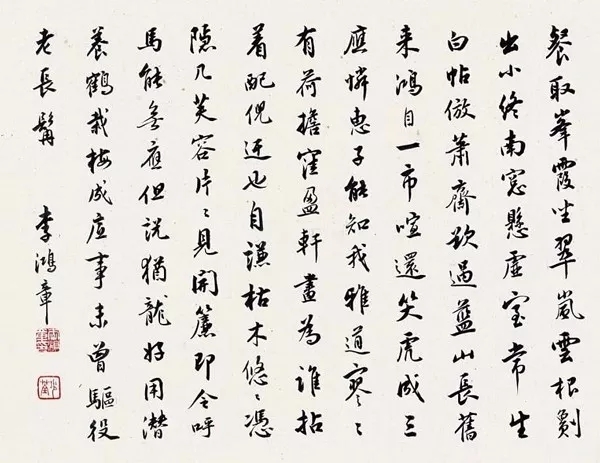 餐取峯霞坐翠嵐雲根劖
出小终南窓懸虛室常生
白帖倣蕭齋欲過藍山長舊
来鴻自一市喧還笑虎成三
應憐惠子能知我雅道寥〻
有荷擔窪盈軒畫為誰拈
着配倪迂也自謙枯木悠〻憑
隱几芙容片〻見開簾即令呼
馬能無應但説猶龍好用潛
養鶴栽梅成底事未曾驅役
老長髯
李鴻章